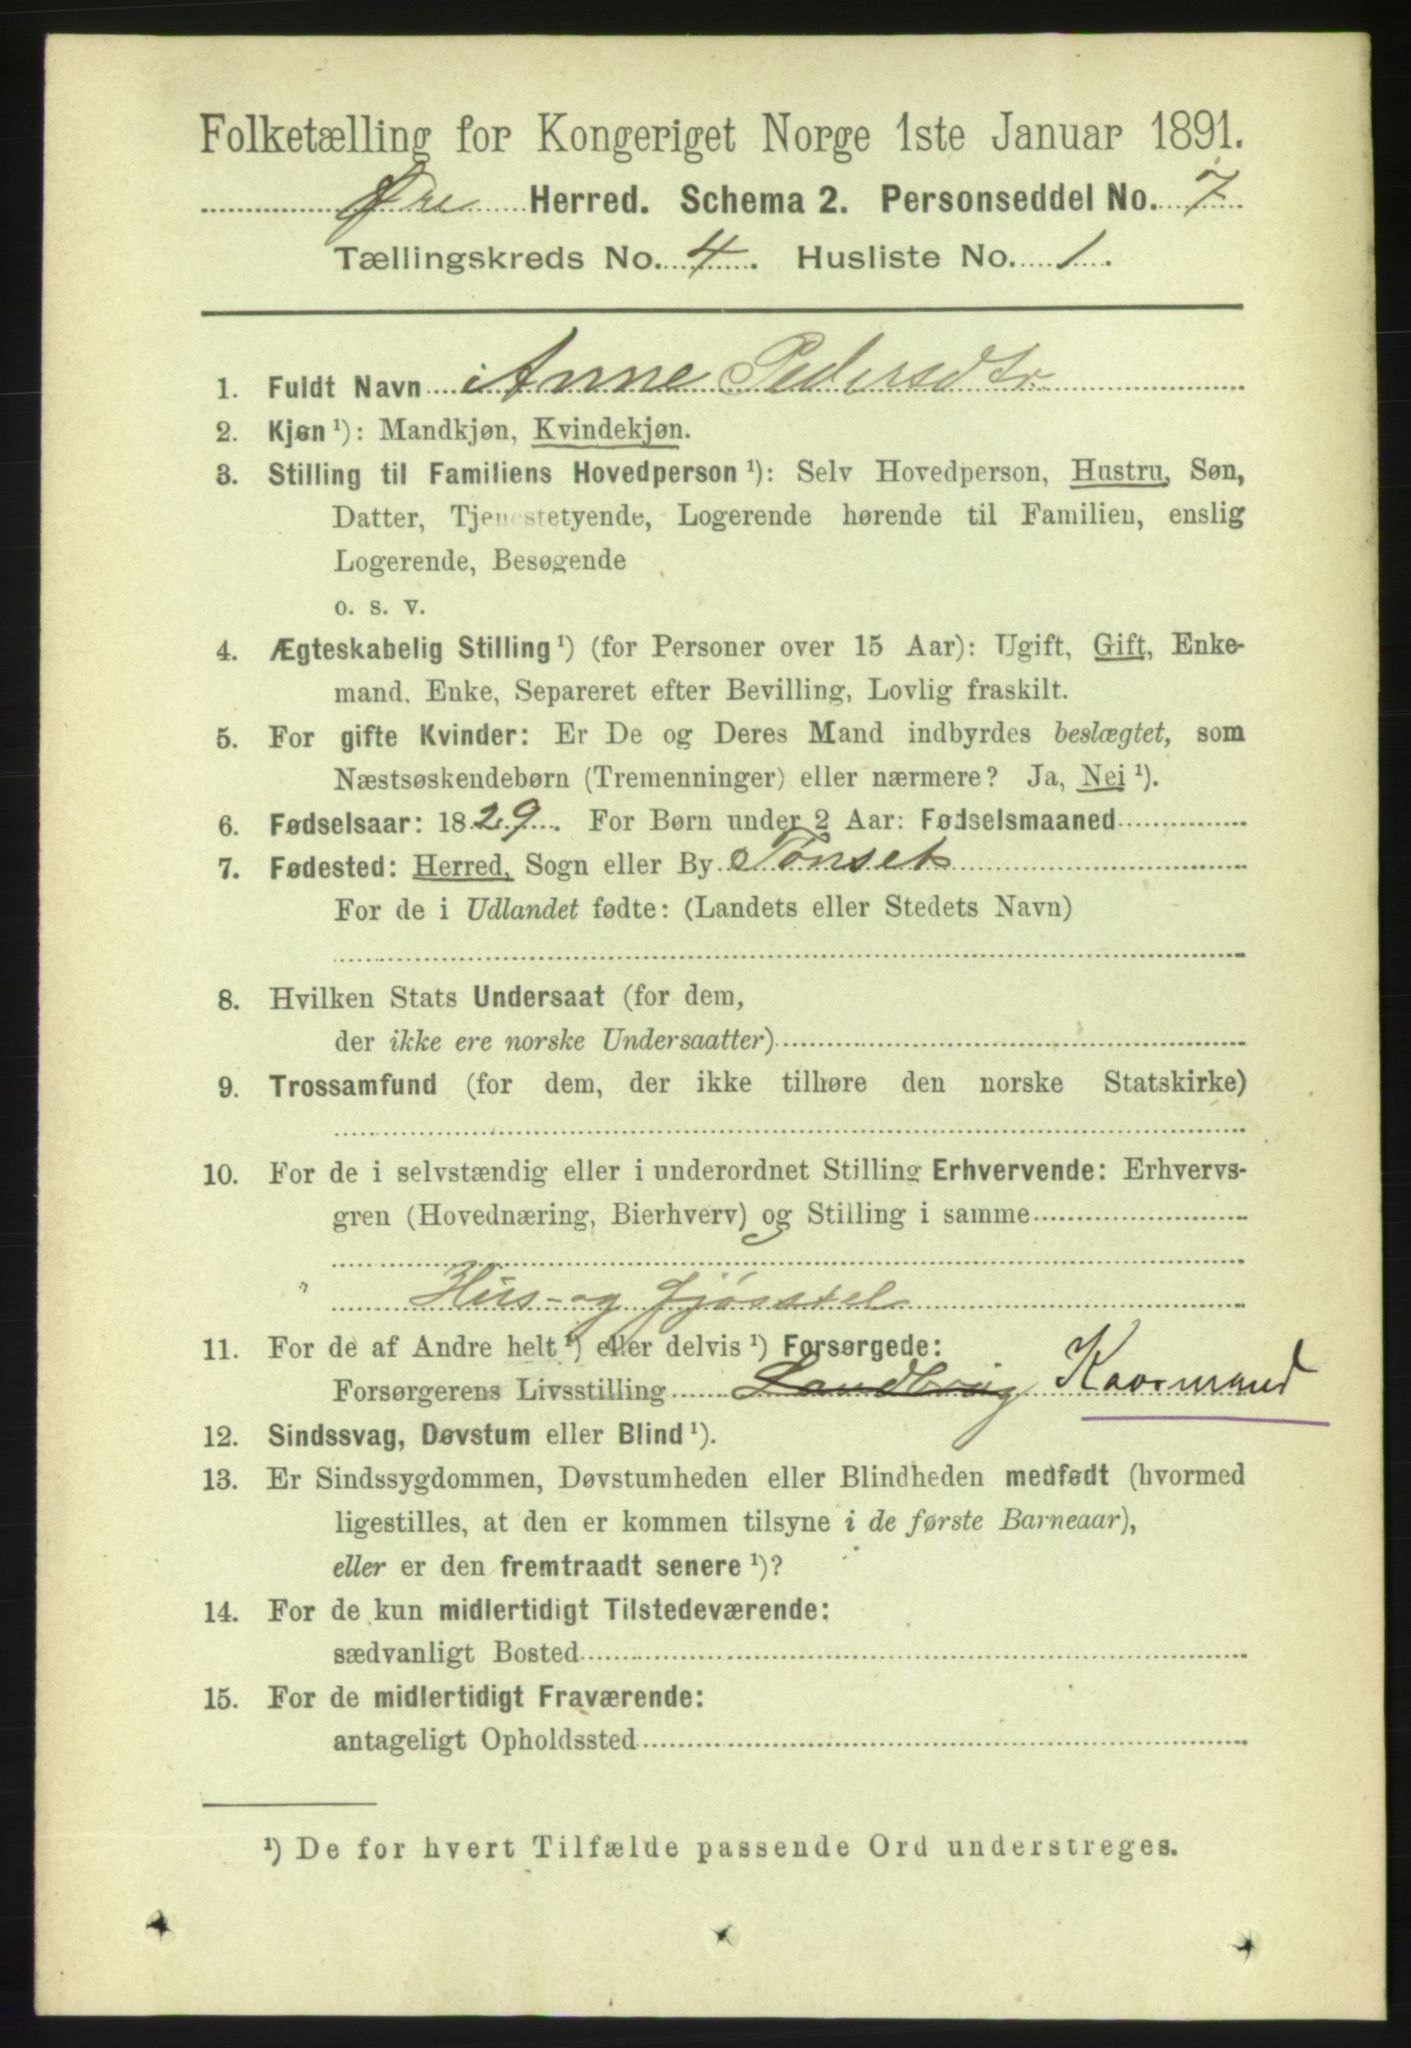 Folketælling for Kongeriget Norge 1ste Januar 1891.
Øre Herred. Schema 2. Personseddel No. 7
Tællingskreds No. 4. Husliste No. 1.
1. Fuldt Navn Anne Pedersdtr
2. Kjøn ¹): Mandkjøn, Kvindekjøn.
3. Stilling til Familiens Hovedperson ¹): Selv Hovedperson, Hustru, Søn,
Datter, Tjenestetyende, Logerende hørende til Familien, enslig
Logerende, Besøgende
o. s. v.
4. Ægteskabelig Stilling ¹) (for Personer over 15 Aar): Ugift, Gift, Enke-
mand, Enke, Separeret efter Bevilling, Lovlig fraskilt.
5. For gifte Kvinder: Er De og Deres Mand indbyrdes beslægtet, som
Næstsøskendebørn (Tremenninger) eller nærmere? Ja, Nei ¹).
6. Fødselsaar: 1829. For Børn under 2 Aar: Fødselsmaaned
7. Fødested: Herred, Sogn eller By Tønset
For de i Udlandet fødte: (Landets eller Stedets Navn)
8. Hvilken Stats Undersaat (for dem,
der ikke ere norske Undersaatter)
9. Trossamfund (for dem, der ikke tilhøre den norske Statskirke)
10. For de i selvstændig eller i underordnet Stilling Erhvervende: Erhvervs-
gren (Hovednæring, Bierhverv) og Stilling i samme
Hus- og fjøsstel
11. For de af Andre helt ¹) eller delvis ¹) Forsørgede:
Forsørgerens Livsstilling Landbrug Kaarmand
12. Sindssvag, Døvstum eller Blind ¹).
13. Er Sindssygdommen, Døvstumheden eller Blindheden medfødt (hvormed
ligestilles, at den er kommen tilsyne i de første Barneaar),
eller er den fremtraadt senere ¹)?
14. For de kun midlertidigt Tilstedeværende:
sædvanligt Bosted
15. For de midlertidigt Fraværende:
antageligt Opholdssted
¹) De for hvert Tilfælde passende Ord understreges.